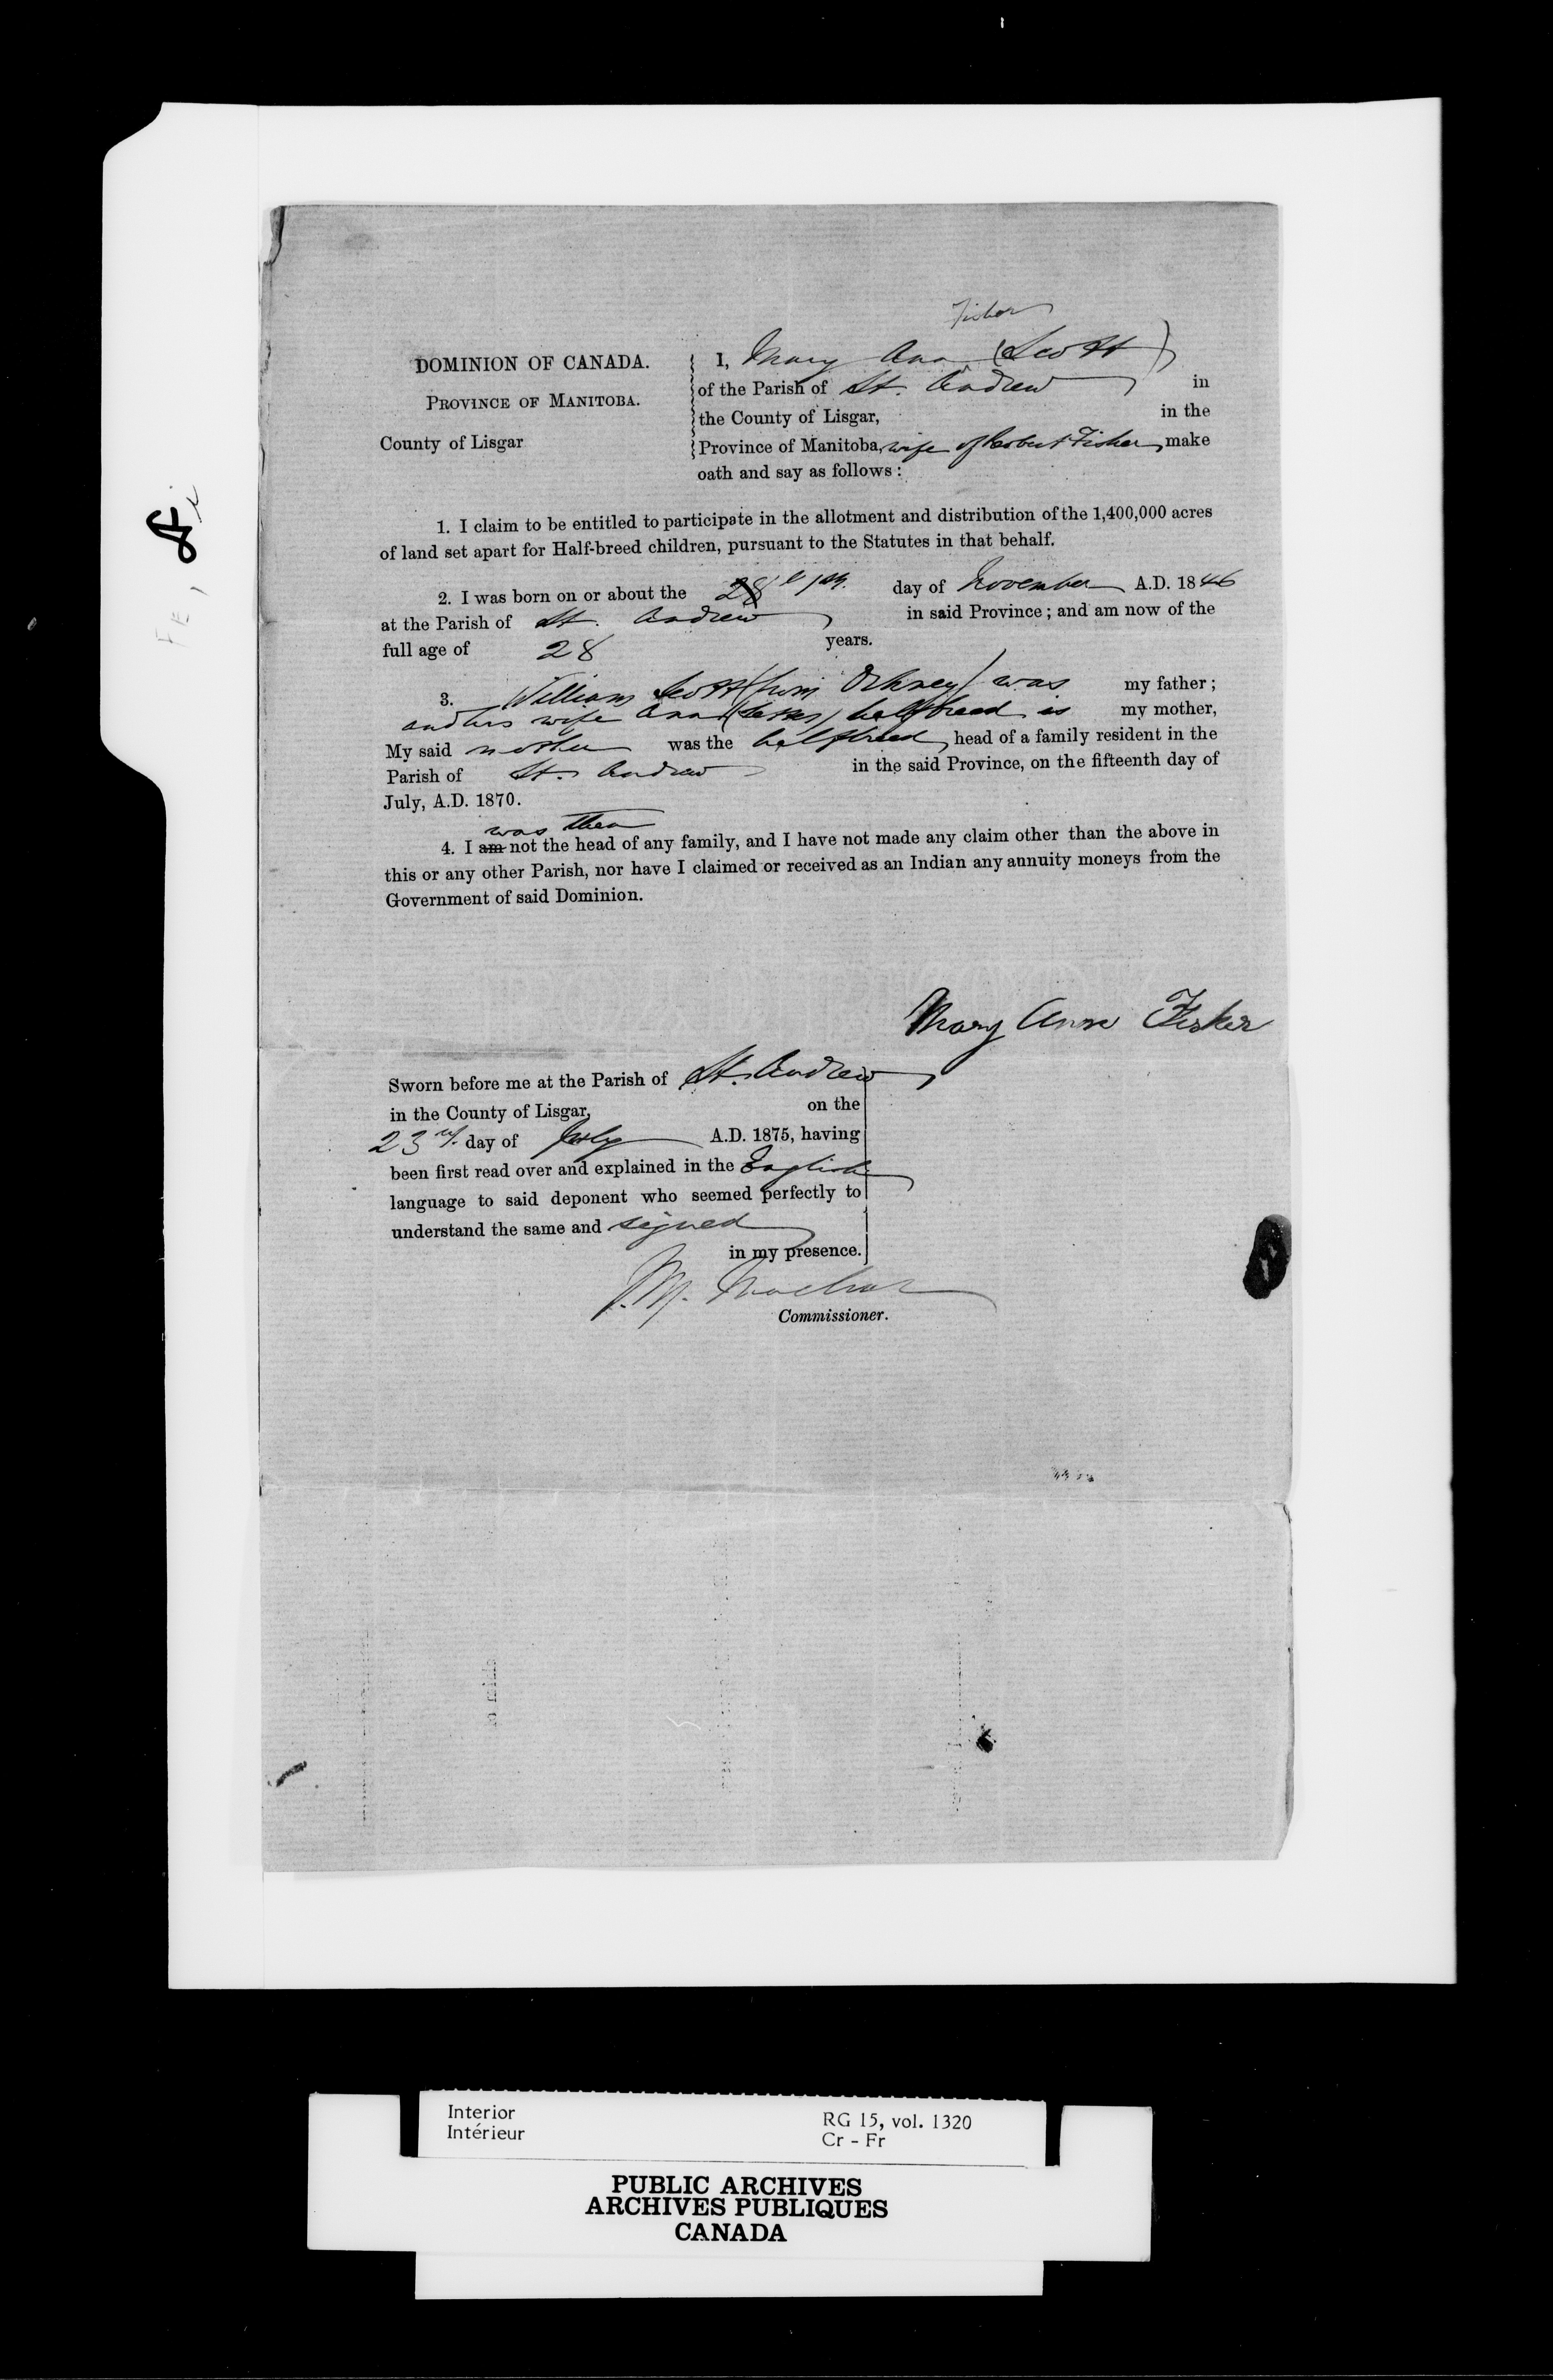 Fisher
DOMINION OF CANADA.
PROVINCE OF MANITOBA.
County of Lisgar
I, Mary Ann (Scott)
of the Parish of St. Andrew in
the County of Lisgar, in the
Province of Manitoba, wife of Robert Fisher, make
oath and say as follows:
1. I claim to be entitled to participate in the allotment and distribution of the 1,400,000 acres
of land set apart for Half-breed children, pursuant to the Statutes in that behalf.
2. I was born on or about the 28 day of November A.D. 1846
at the Parish of St. Andrew in said Province; and am now of the
full age of 28 years.
3. William Scott (from Orkney) was my father;
and his wife Ann halfbreed is my mother,
My said mother was the halfbreed head of a family resident in the
Parish of St. Andrew in the said Province, on the fifteenth day of
July, A.D. 1870.
was then
4. I am not the head of any family, and I have not made any claim other than the above in
this or any other Parish, nor have I claimed or received as an Indian any annuity moneys from the
Government of said Dominion.
Mary Ann Fisher
Sworn before me at the Parish of St. Andrew
in the County of Lisgar, on the
23rd. day of July A.D. 1875, having
been first read over and explained in the English
language to said deponent who seemed perfectly to
understand the same and signed
in my presence.
J.M. Machar
Commissioner.
Interior
Intérieur
RG 15, vol. 1320
Cr - Fr
PUBLIC ARCHIVES
ARCHIVES PUBLIQUES
CANADA